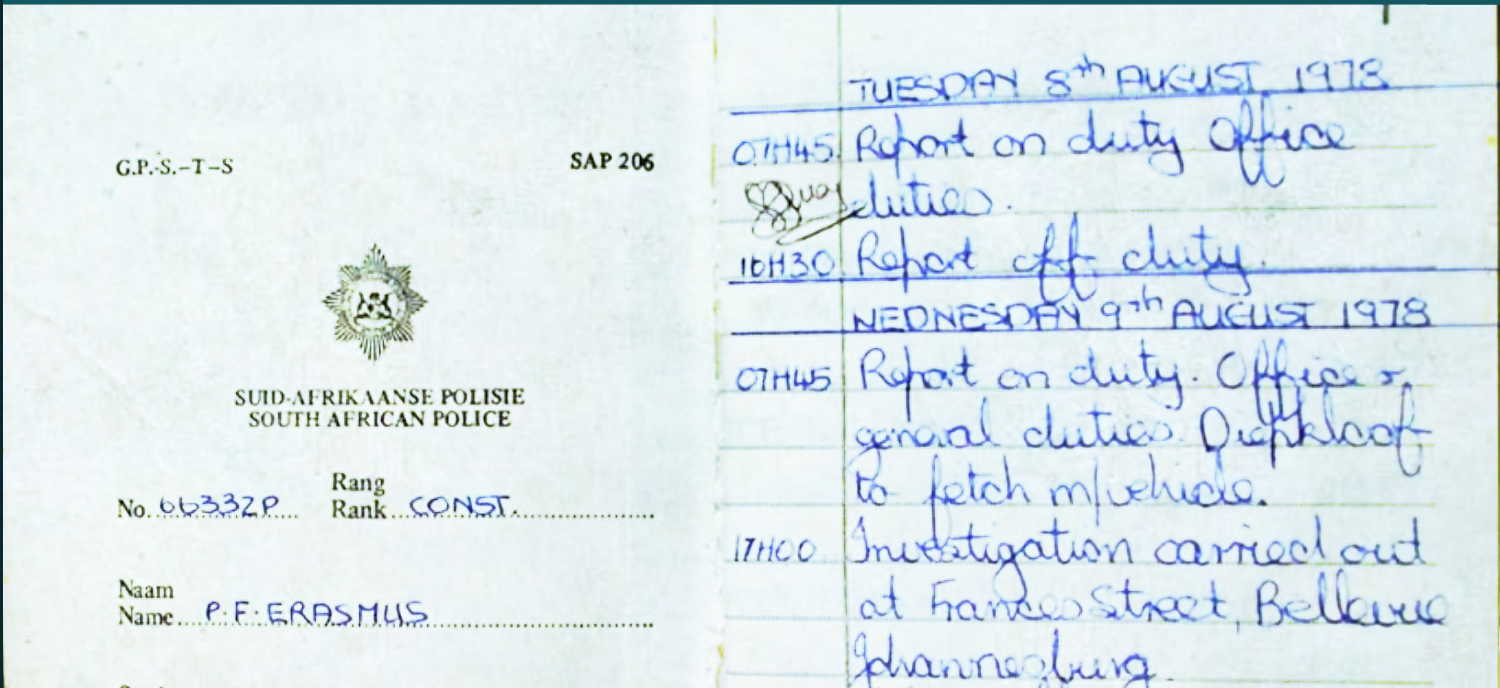 G.P.-S.-T-S
SAP 206
SUID-AFRIKAANSE POLISIE
SOUTH AFRICAN POLICE
Rang
No. 66332P Rank CONST.
Naam
Name P.F. ERASMUS
TUESDAY 8th AUGUST 1978
07H45 Report on duty Office
duties.
16H30 Report off duty.
WEDNESDAY 9th AUGUST 1978
07H45 Report on duty. Office &
general duties. Diepkloof
to fetch m/vehicle.
17H00 Investigation carried out
at Frances Street, Bellevue
Johannesburg.